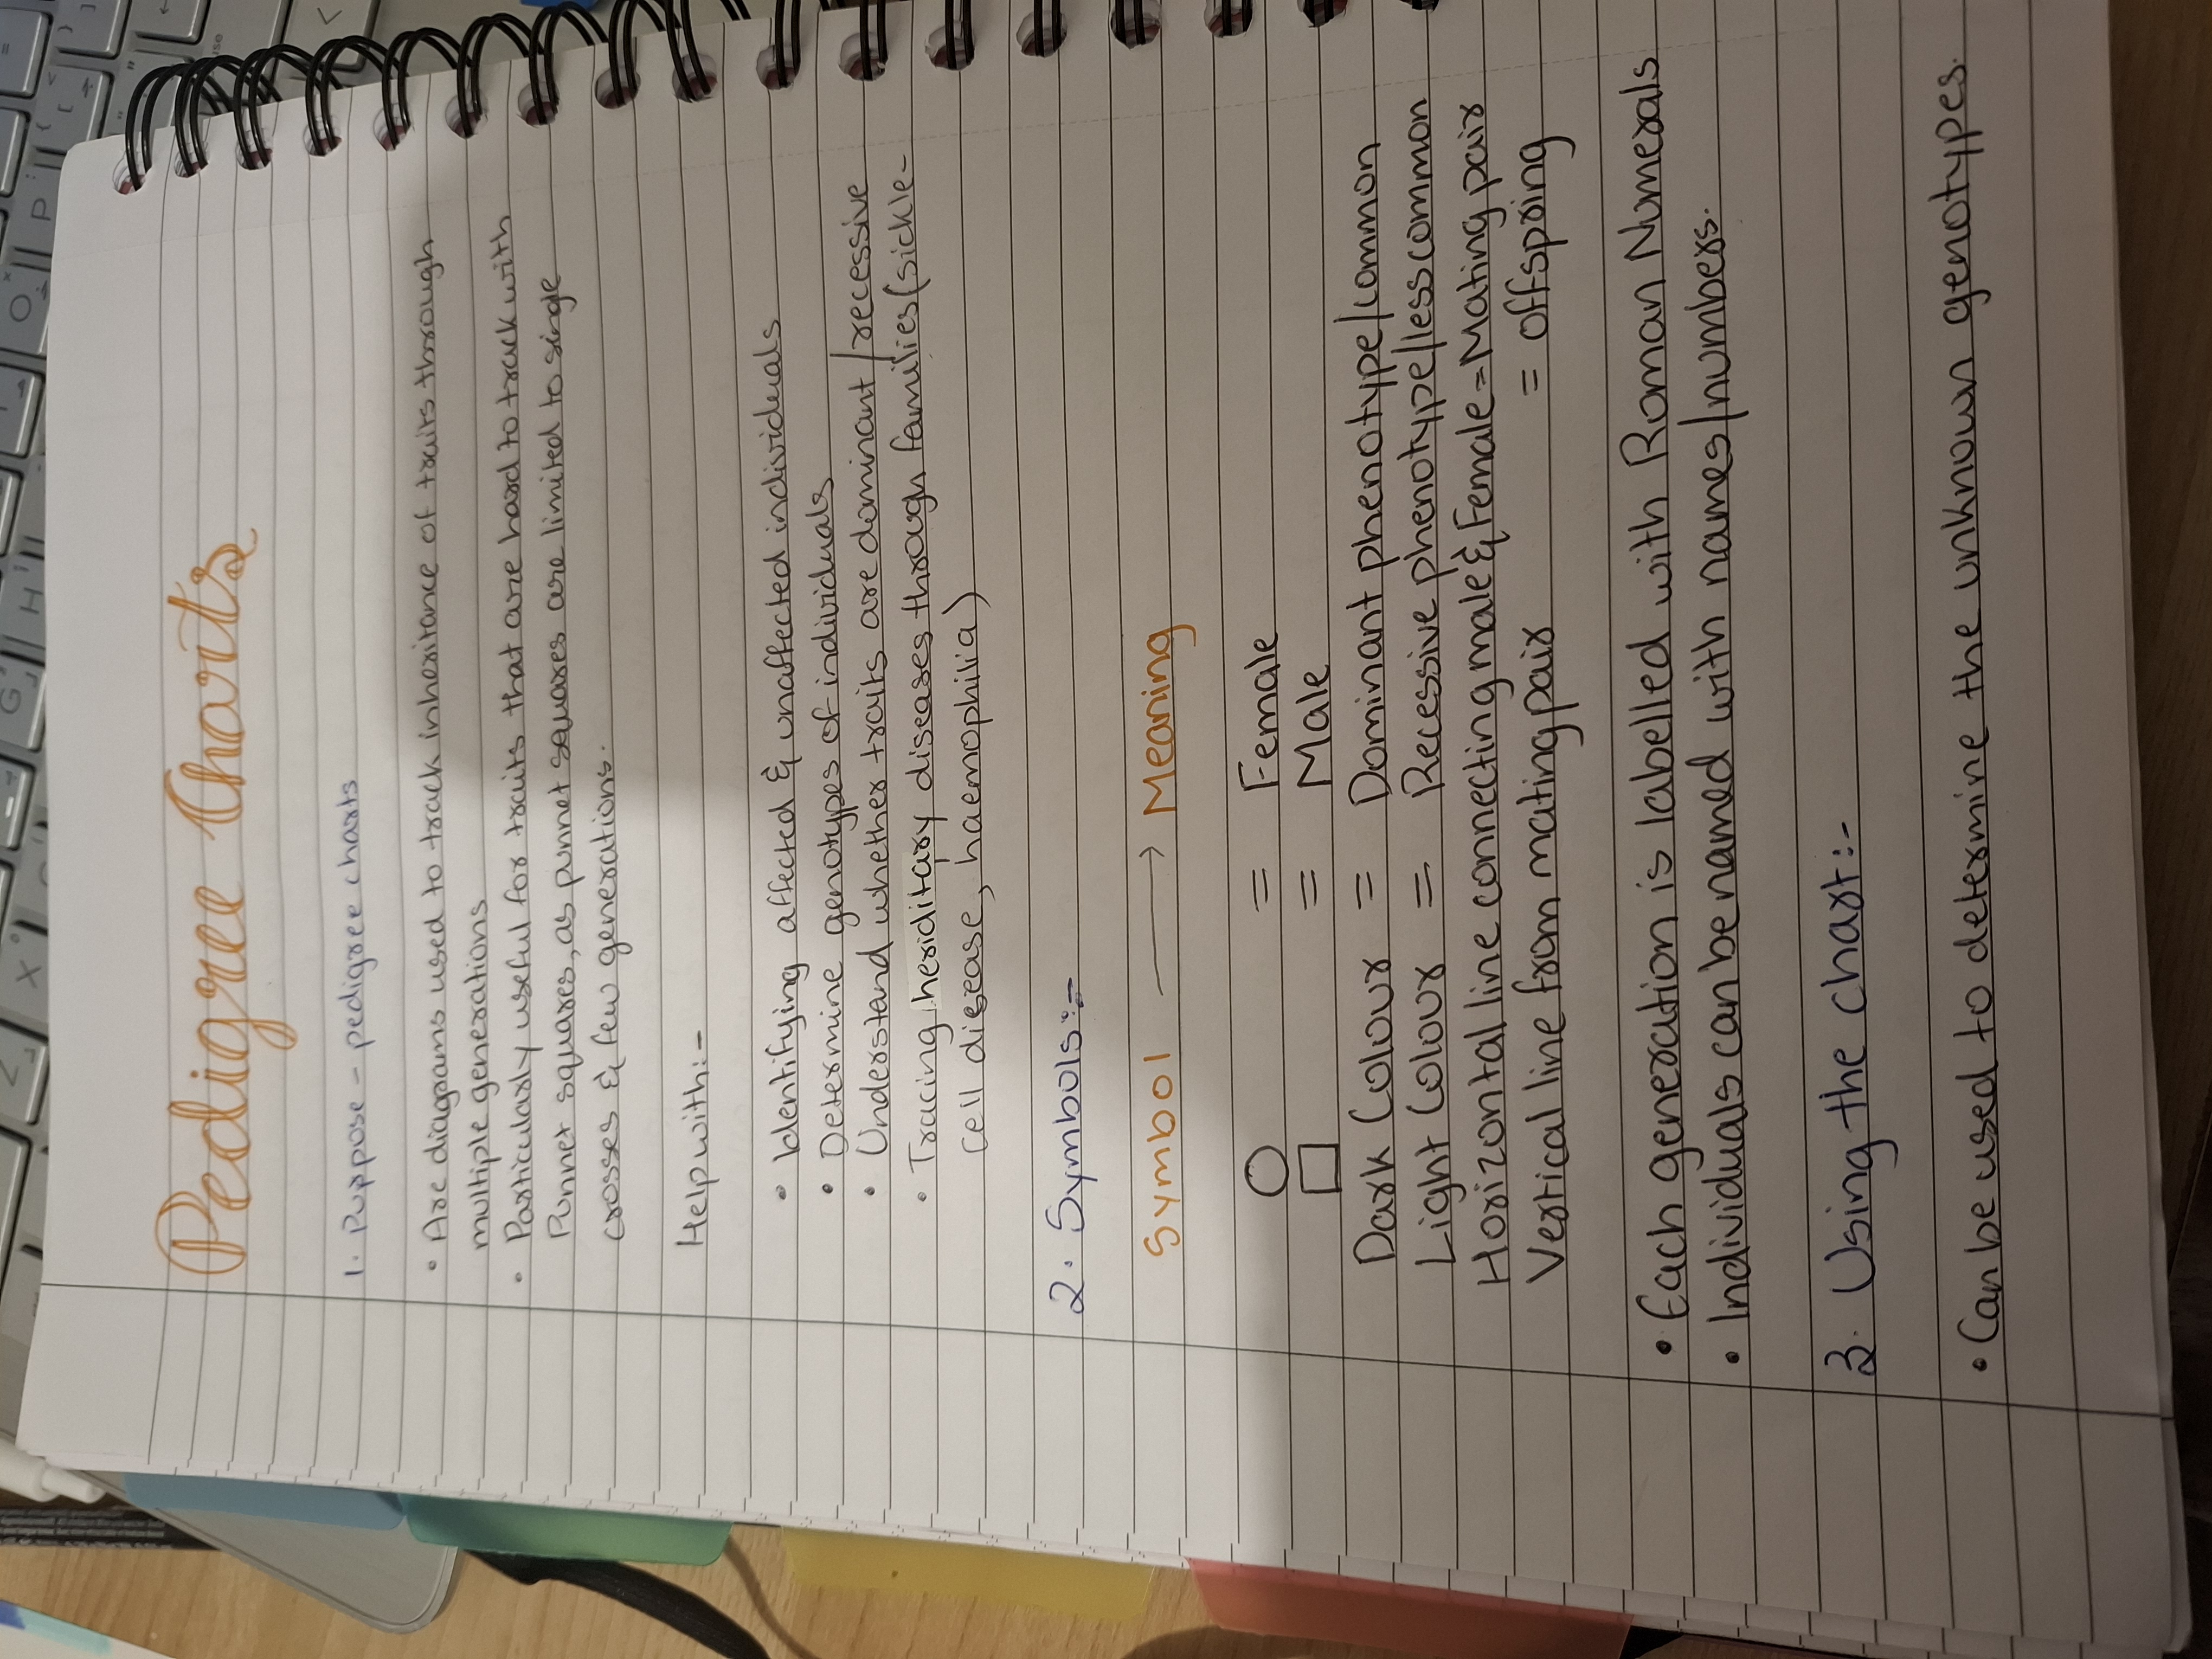 Pedigree Charts
1. Purpose - pedigree charts
• Are diagrams used to track inheritance of traits through
multiple generations
• Particularly useful for traits that are hard to track with
Punnet squares, as punnet squares are limited to single
crosses & few generations.
Help with:-
• Identifying affected & unaffected individuals
• Determine genotypes of individuals
• Understand whether traits are dominant/recessive
• Tracing heriditary diseases through families (sickle-
cell disease, haemophilia)
2. Symbols:-
Symbol → Meaning
○ = Female
□ = Male
Dark Colour = Dominant phenotype/common
Light Colour = Recessive phenotype/less common
Horizontal line connecting male & Female = Mating pair
Vertical line from mating pair = offspring
• Each generation is labelled with Roman Numerals
• Individuals can be named with names/numbers.
3. Using the chart:-
• Can be used to determine the unknown genotypes.